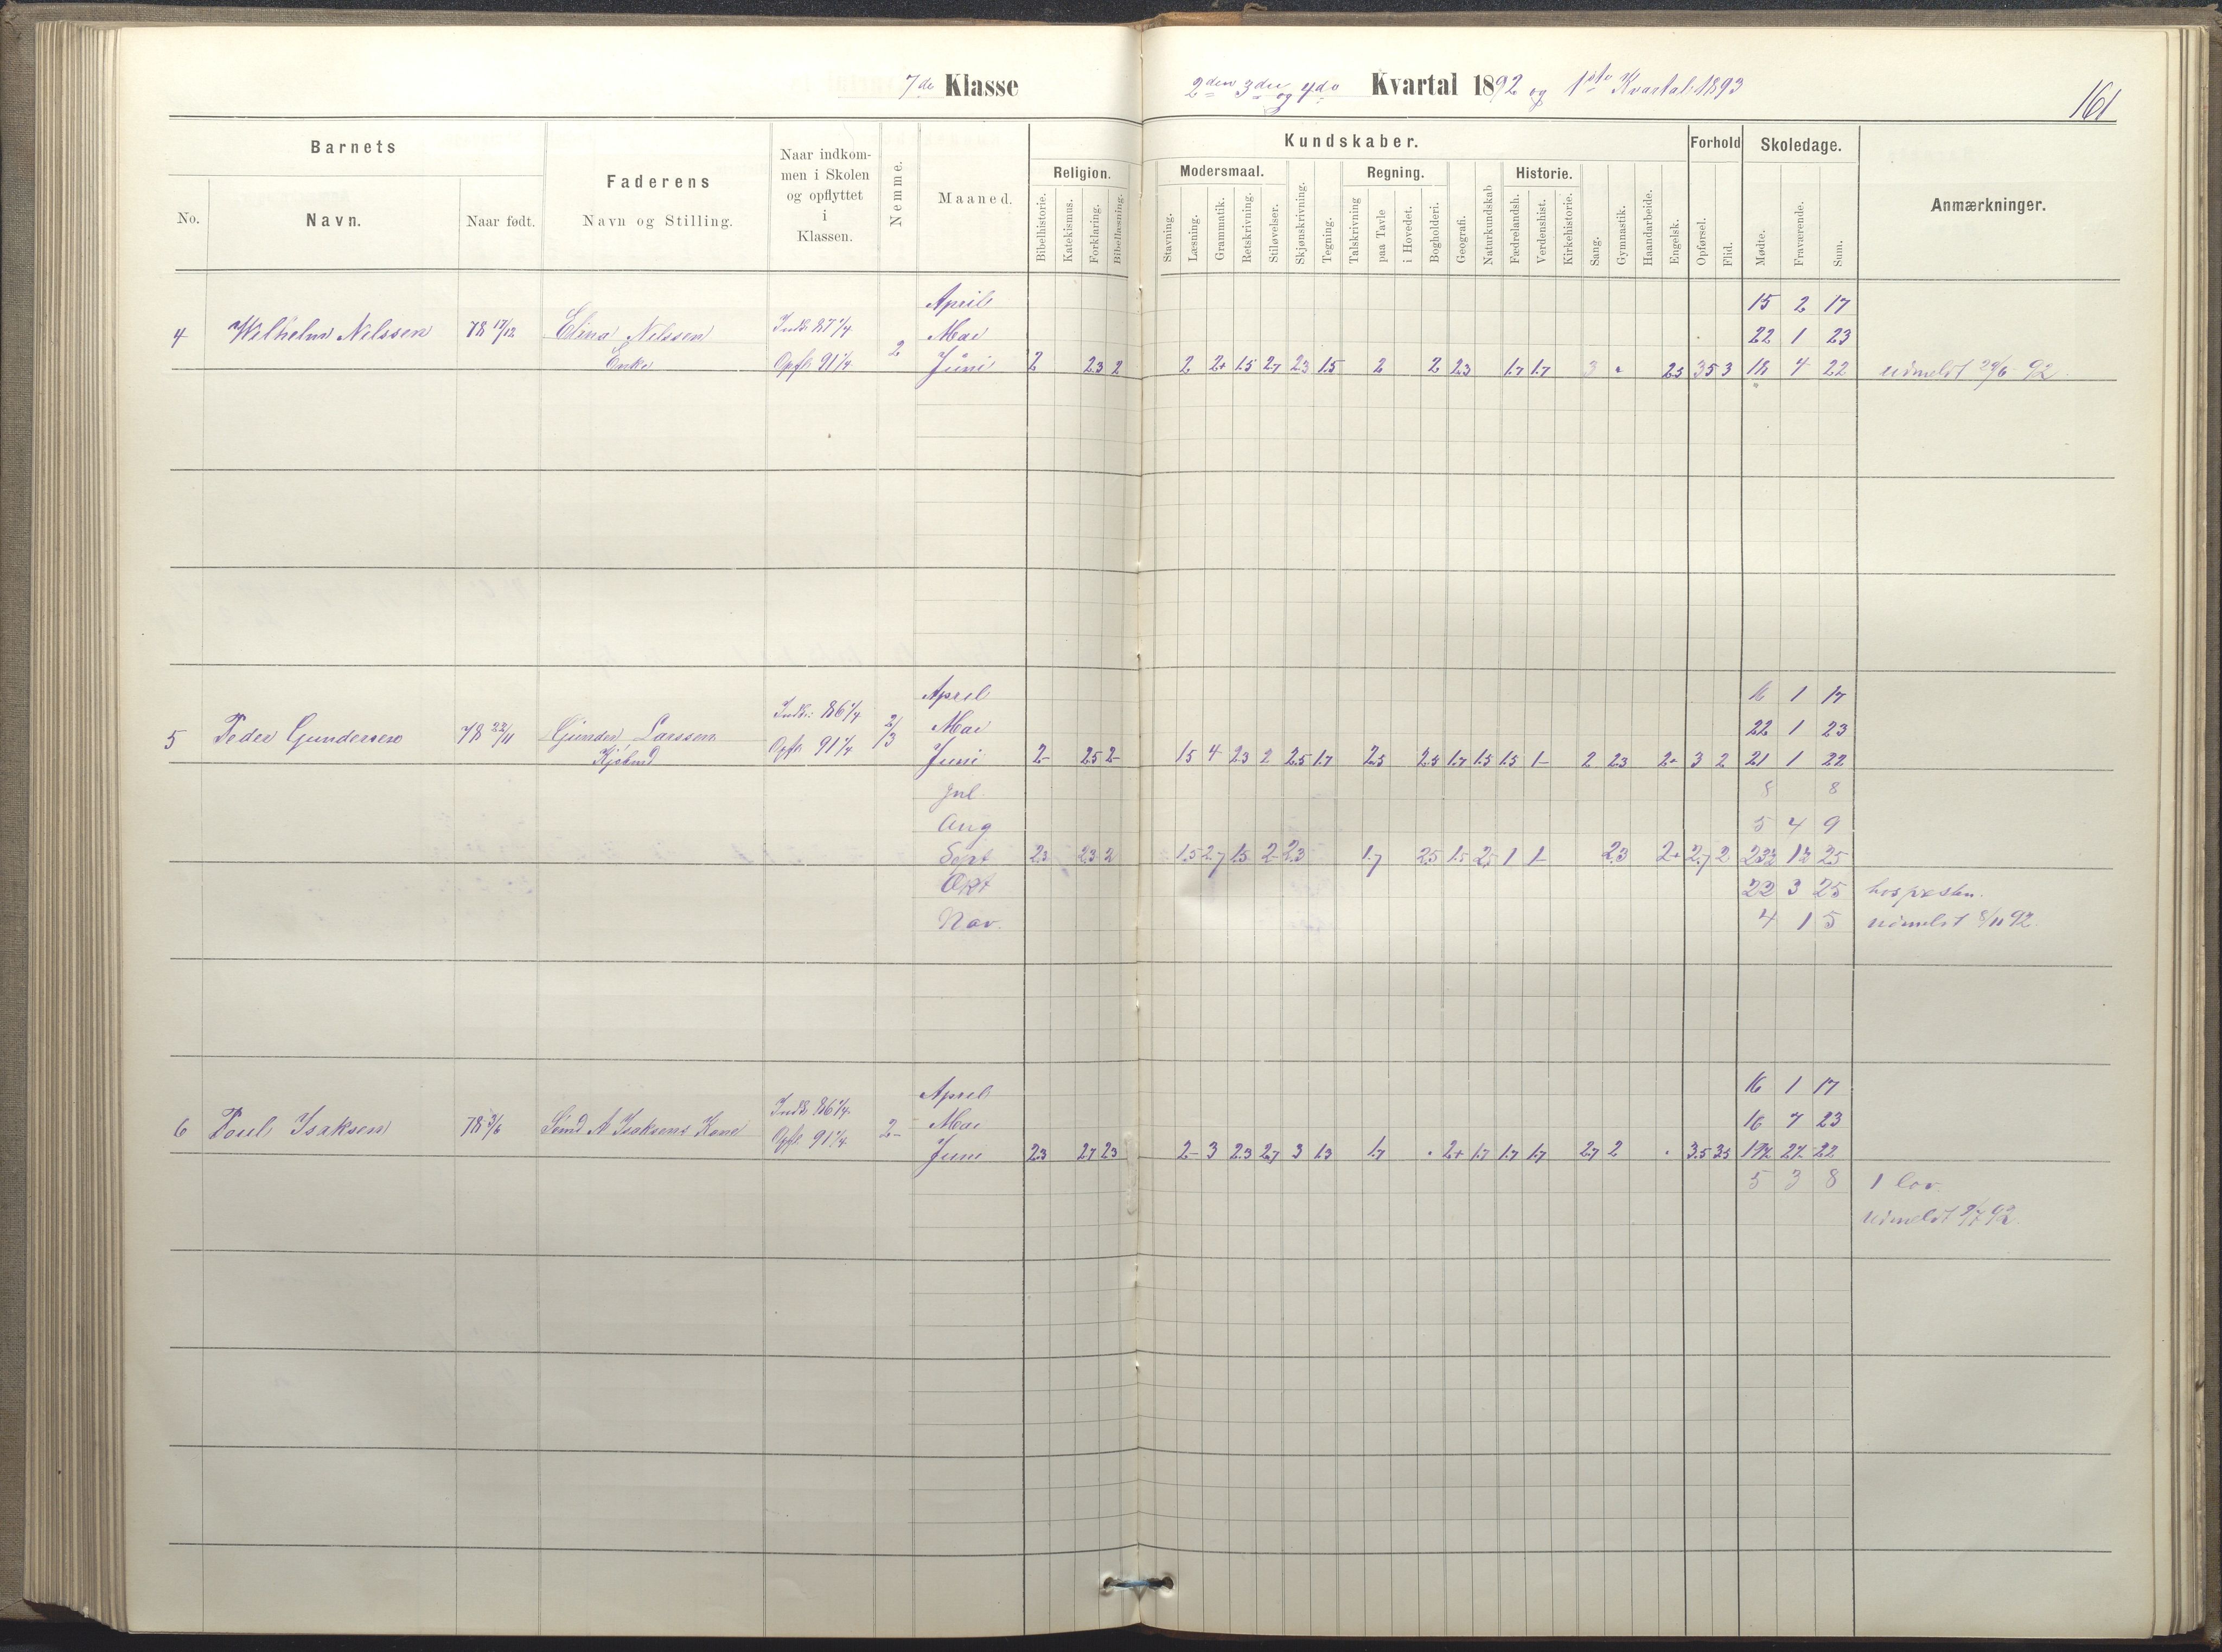 7de Klasse
2den 3die og 4de Kvartal 1892 og 1ste Kvartal 1893
161
Barnets
No.
Navn.
Naar født.
Faderens
Navn og Stilling.
Naar indkom-
men i Skolen
og opflyttet
i
Klassen.
Nemme.
Maaned.
Kundskaber.
Religion.
Bibelhistorie.
Katekismus.
Forklaring.
Bibellæsning.
Modersmaal.
Stavning.
Læsning.
Grammatik.
Retskrivning.
Stiløvelser.
Skjønskrivning.
Tegning.
Regning.
Talskrivning
paa Tavle
i Hovedet.
Bogholderi.
Geografi.
Naturkundskab
Historie.
Fædrelandsh.
Verdenshist.
Kirkehistorie.
Sang.
Gymnastik.
Haandarbeide.
Engelsk.
Forhold
Opførsel.
Flid.
Skoledage.
Mødte.
Fraværende.
Sum.
Anmærkninger.
April 15 2 17
4 Wilhelm Nilssen 78 17/12 Elina Nilssen Indk. 87 1/4 2 Mai 22 1 23
Enke Opfl. 91 1/4 Juni 2 2.3 2 2 2+ 1.5 2.7 2.3 1.5 2 2 2.3 1.7 1.7 3 2.5 3.5 3 18 4 22 udmeldt 92
April 16 1 17
5 Peder Gundersen 78 22/11 Gunder Larssen Indk. 86 1/4 2/3 Mai 22 1 23
Opfl. 91 1/4 Juni 2- 2.5 2- 1.5 4 2.3 2 2.5 1.7 2.5 2.5 1.7 1.5 1.5 1- 2 2.3 2+ 3 2 21 1 22
Jul. 8 8
Aug 5 4 9
Sept 2.3 2.3 2 1.5 2.7 1.5 2- 2.3 1.7 2.5 1.5 2.5 1 1- 2.3 2+ 2.7 2 23½ 1½ 25
Okt 22 3 25 hos præsten.
Nov. 4 1 5 udmeldt 8/11 92.
April 16 1 17
6 Poul Isaksen 78 3/6 A Isaksens Kone Indk. 86 1/4 2- Mai 16 7 23
Opfl. 91 1/4 Juni 2.3 2.7 2.3 2- 3 2.3 2.7 3 1.3 1.7 2+ 1.7 1.7 1.7 2.7 2 3.5 3.5 19½ 2½ 22
5 3 8 1 lov.
udmeldt 92.